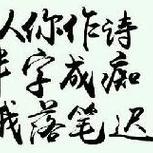 以你作诗
半字成痴
我落笔迟